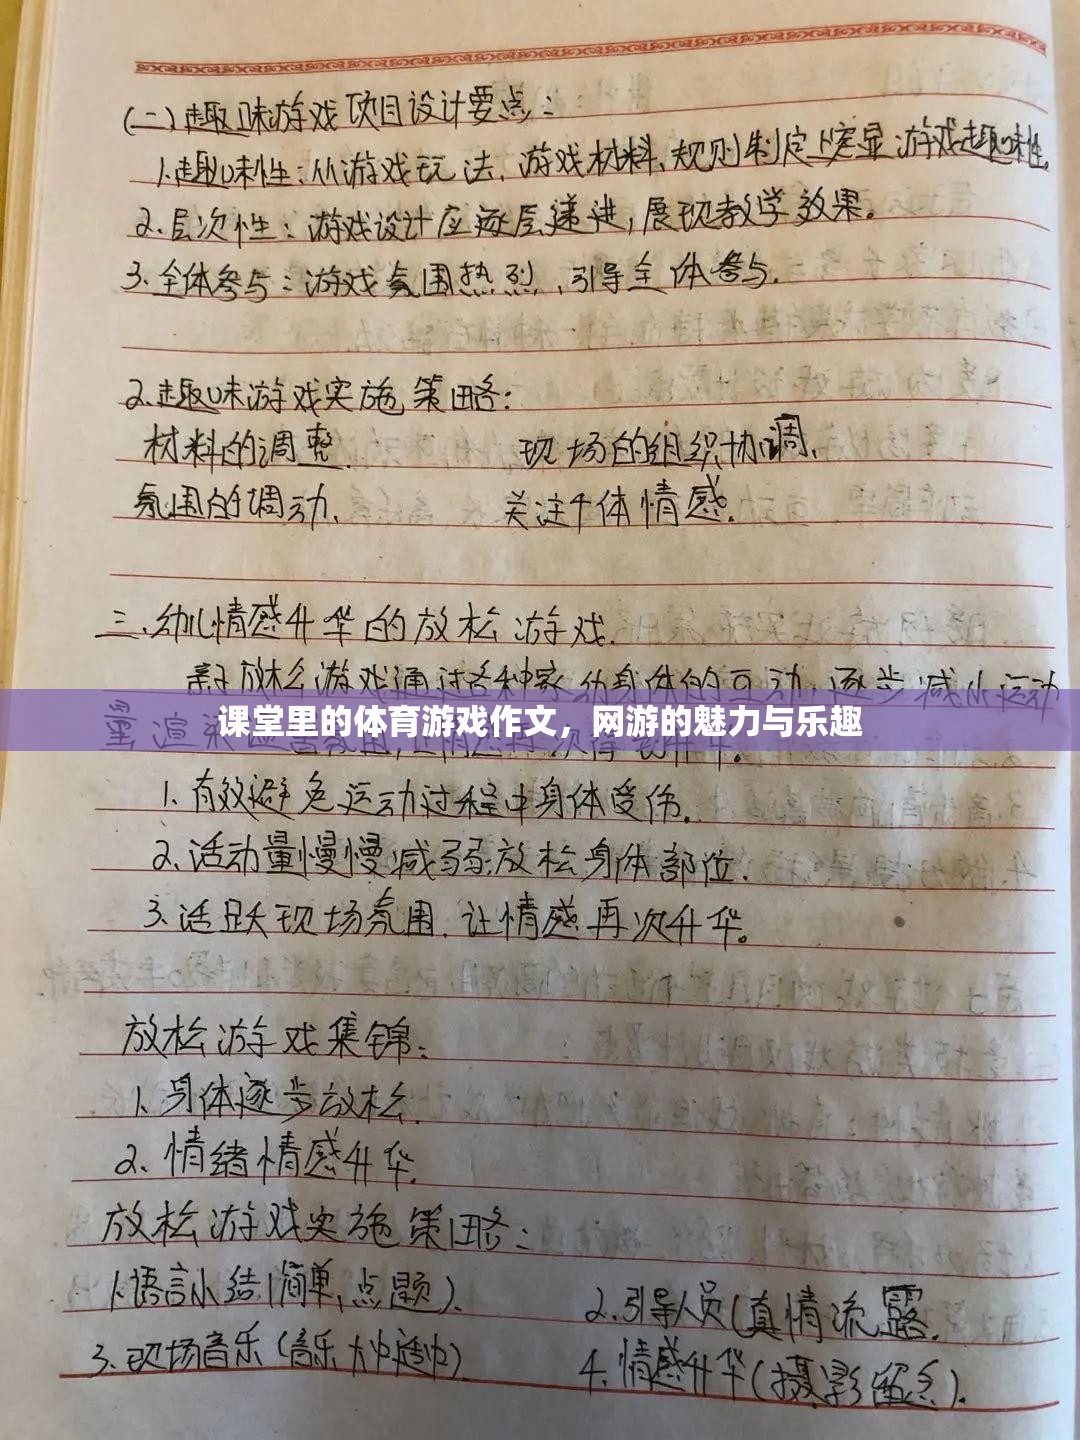 (二)趣味游戏项目设计要点:
1.趣味性:从游戏玩法、游戏材料、规则制定上突显游戏趣味性。
2.层次性:游戏设计应逐层递进,展现教学效果。
3.全体参与:游戏氛围热烈、引导全体参与.
2.趣味游戏实施策略:
材料的调整. 现场的组织协调.
氛围的调动. 关注个体情感.
三.幼儿情感升华的放松游戏.
亲子放松游戏通过各种家幼身体的互动,逐步减小运动
量渲染
课堂里的体育游戏作文，网游的魅力与乐趣
1.有效避免运动过程中身体受伤.
2.活动量慢慢减弱.放松身体部位.
3.活跃现场氛围.让情感再次升华。
放松游戏集锦:
1.身体逐步放松.
2.情绪情感升华.
放松游戏实施策略:
1.语言小结(简单,点题). 2.引导人员(真情流露.
3.现场音乐(音乐 4.情感升华(摄影留念).